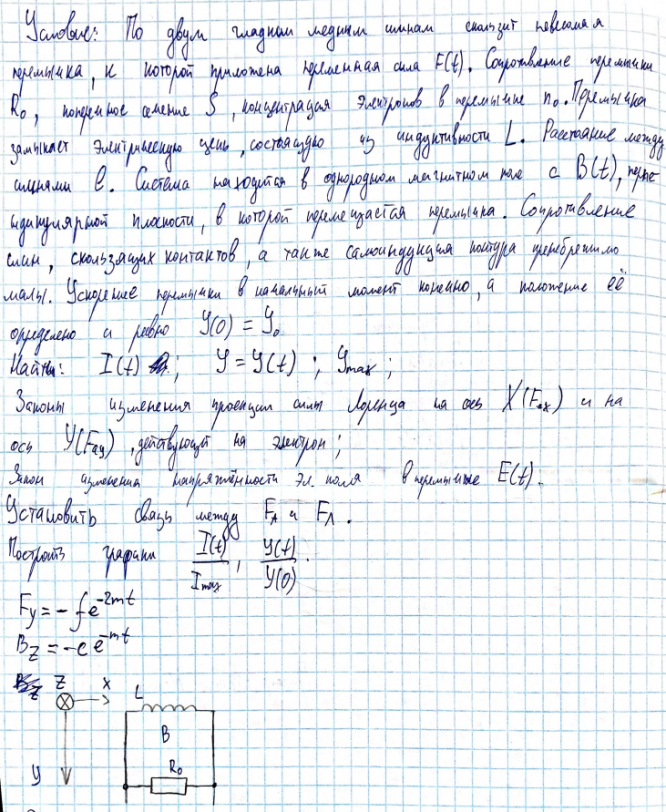 Условие: По двум гладким медным шинам скользит невесомая
перемычка, к которой приложена переменная сила F(t). Сопротивление перемычки
R₀, поперечное сечение S, концентрация электронов в перемычке n₀. Перемычка
замыкает электрическую цепь, состоящую из индуктивности L. Расстояние между
шинами ℓ. Система находится в однородном магнитном поле с B(t), перпен
дикулярной плоскости, в которой перемещается перемычка. Сопротивление
шин, скользящих контактов, а также самоиндукция контура пренебрежимо
малы. Ускорение перемычки в начальный момент конечно, а положение её
определено и равно Y(0) = Y₀
Найти: I(t); Y = Y(t); Ymax;
Законы изменения проекции силы Лоренца на ось X(Fлx) и на
ось Y(Fлy), действующей на электрон;
Закон изменения напряжённости эл. поля в перемычке E(t).
Установить связь между FA и FЛ.
Построить графики I(t)/Imax; Y(t)/Y(0).
Fy = -fe^-2mt
Bz = -ce^-mt
Z X L
B
R₀
y